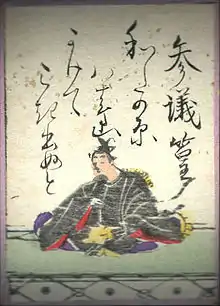 参議篁
和たの原
八十島
かけて
こき出ぬと